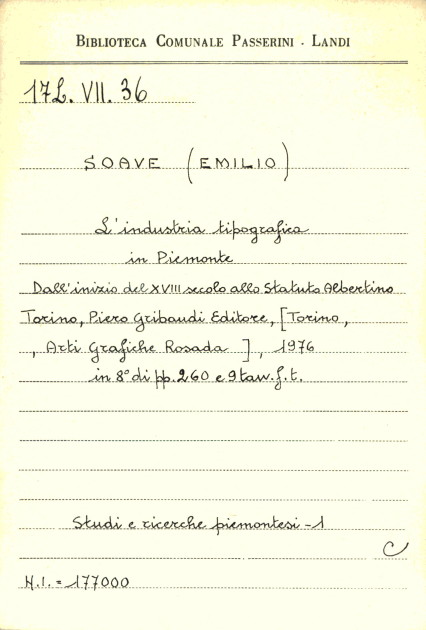 BIBLIOTECA COMUNALE PASSERINI - LANDI
17L. VII. 36
SOAVE (EMILIO)
L'industria tipografica
in Piemonte
Dall'inizio del XVIII secolo allo Statuto Albertino
Torino, Piero Gribaudi Editore, [Torino,
, Arti Grafiche Rosada ], 1976
in 8° di pp. 260 e 9 tav. f. t.
Studi e ricerche piemontesi - 1
C
N.I. = 177000